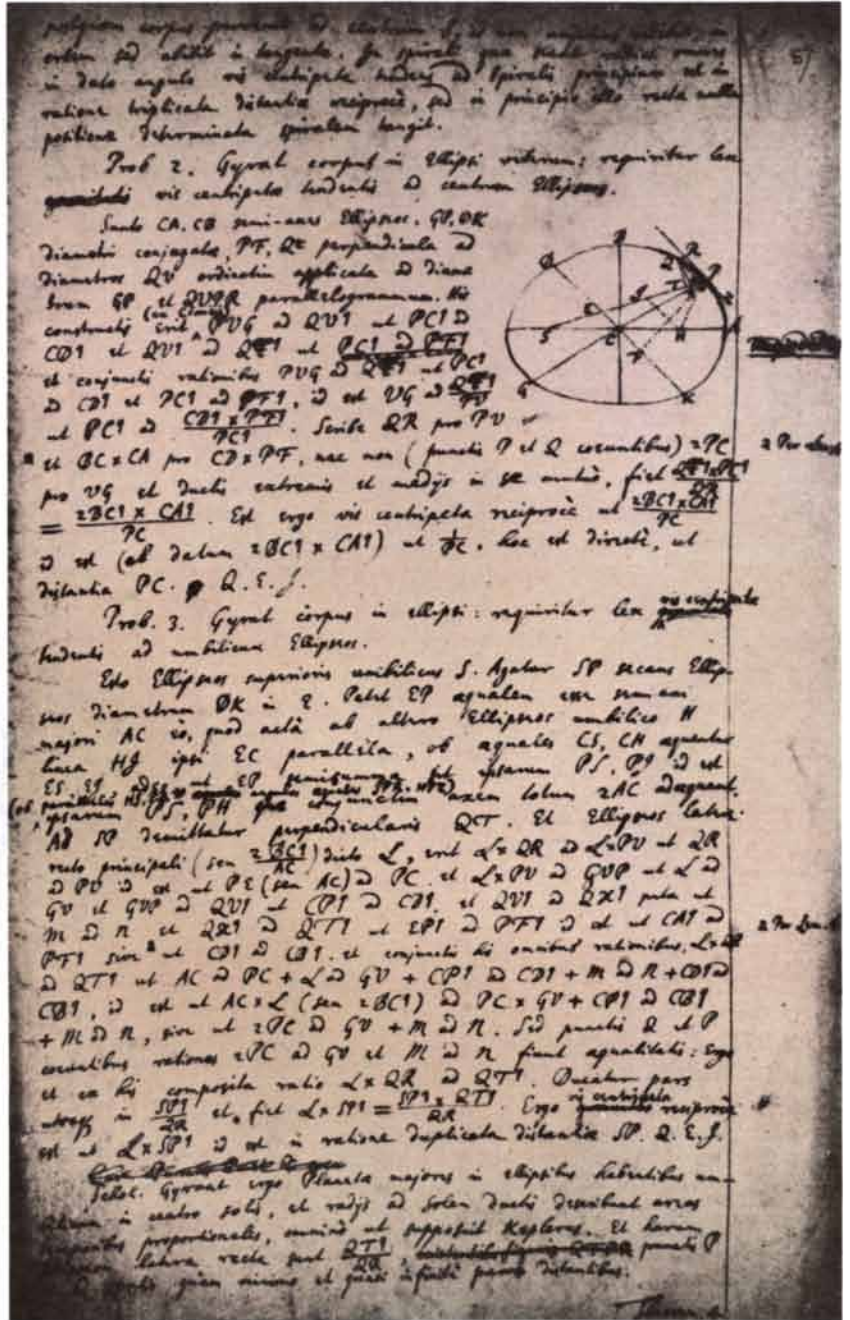 57
orbem sed abibit in tangente. In spirali quæ secat radios omnes
in dato angulo vis centripeta tendens ad spiralis principium est in
ratione triplicata distantiæ reciprocè, sed in principio illo recta nulla
positione determinata spiralem tangit.
Prob 2. Gyrat corpus in Ellipsi veterum: requiritur lex
vis centripetæ tendentis ad centrum Ellipseos.
Sunto CA, CB semi-axes Ellipseos, GP, DK
diametri conjugatæ, PF, Qt perpendicula ad
diametros QV ordinatim applicata ad diame
trum GP et QVPR parallelogrammum. His
constructis erit PVG ad QV1 ut PC1 ad
CD1 et QV1 ad Qt1 ut PC1 ad PF1
et conjunctis rationibus PVG ad Qt1 ut PC1
ad CD1 et PC1 ad PF1, id est VG ad Qt1/PV
ut PC1 ad CD1 × PF1/PC1. Scribe QR pro PV
et BC × CA pro CD × PF, nec non (punctis P et Q coeuntibus) 2PC
pro VG et ductis extremis et medijs in se mutuò, fiet Qt1 × PC1/QR
= 2BC1 × CA1/PC. Est ergo vis centripeta reciprocè ut 2BC1 × CA1/PC
id est (ob datum 2BC1 × CA1) ut 1/PC, hoc est directè, ut
distantia PC. Q.E.I.
Prob. 3. Gyrat corpus in ellipsi: requiritur lex vis centripetæ
tendentis ad umbilicum Ellipseos.
Esto Ellipseos superioris umbilicus S. Agatur SP secans Ellip-
seos diametrum DK in E. Patet EP æqualem esse semi axi
majori AC eo, quod actâ ab altero Ellipseos umbilico H
linea HI ipsi EC parallela, ob æquales CS, CH æquentur
ES, EI adeo ut EP semisumma sit ipsarum PS, PI id est
ipsarum PS, PH quæ conjunctim axem totum 2AC adæquant.
Ad SP demittatur perpendicularis QT. Et Ellipseos latere
recto principali (seu 2BC1/AC) dicto L, erit L × QR ad L × PV ut QR
ad PV id est ut PE (seu AC) ad PC. et L × PV ad GVP ut L ad
GV et GVP ad QV1 ut CP1 ad CD1. et QV1 ad QX1 puta ut
M ad N et QX1 ad QT1 ut EP1 ad PF1 id est ut CA1 ad
PF1 sive ut CD1 ad CB1. et conjunctis his omnibus rationibus, L × QR
ad QT1 ut AC ad PC + L ad GV + CP1 ad CD1 + M ad N + CD1 ad
CB1, id est ut AC × L (seu 2BC1) ad PC × GV + CP1 ad CB1
+ M ad N, sive ut 2PC ad GV + M ad N. Sed punctis Q et P
coeuntibus rationes 2PC ad GV et M ad N fiunt æqualitatis: Ergo
et ex his composita ratio L × QR ad QT1. Ducatur pars
utraque in SP1/QR et fiet L × SP1 = SP1 × QT1/QR. Ergo vis centripeta reciprocè
est ut L × SP1 id est in ratione duplicata distantiæ SP. Q.E.I.
Schol. Gyrant ergo Planetæ majores in ellipsibus habentibus um-
bilicum in centro solis, et radijs ad Solem ductis describunt areas
temporibus proportionales, omninò ut supposuit Keplerus. Et harum
latera recta sunt QT1/QR, punctis P
Q spatio quàm minimo et quasi infinitè parvo distantibus.